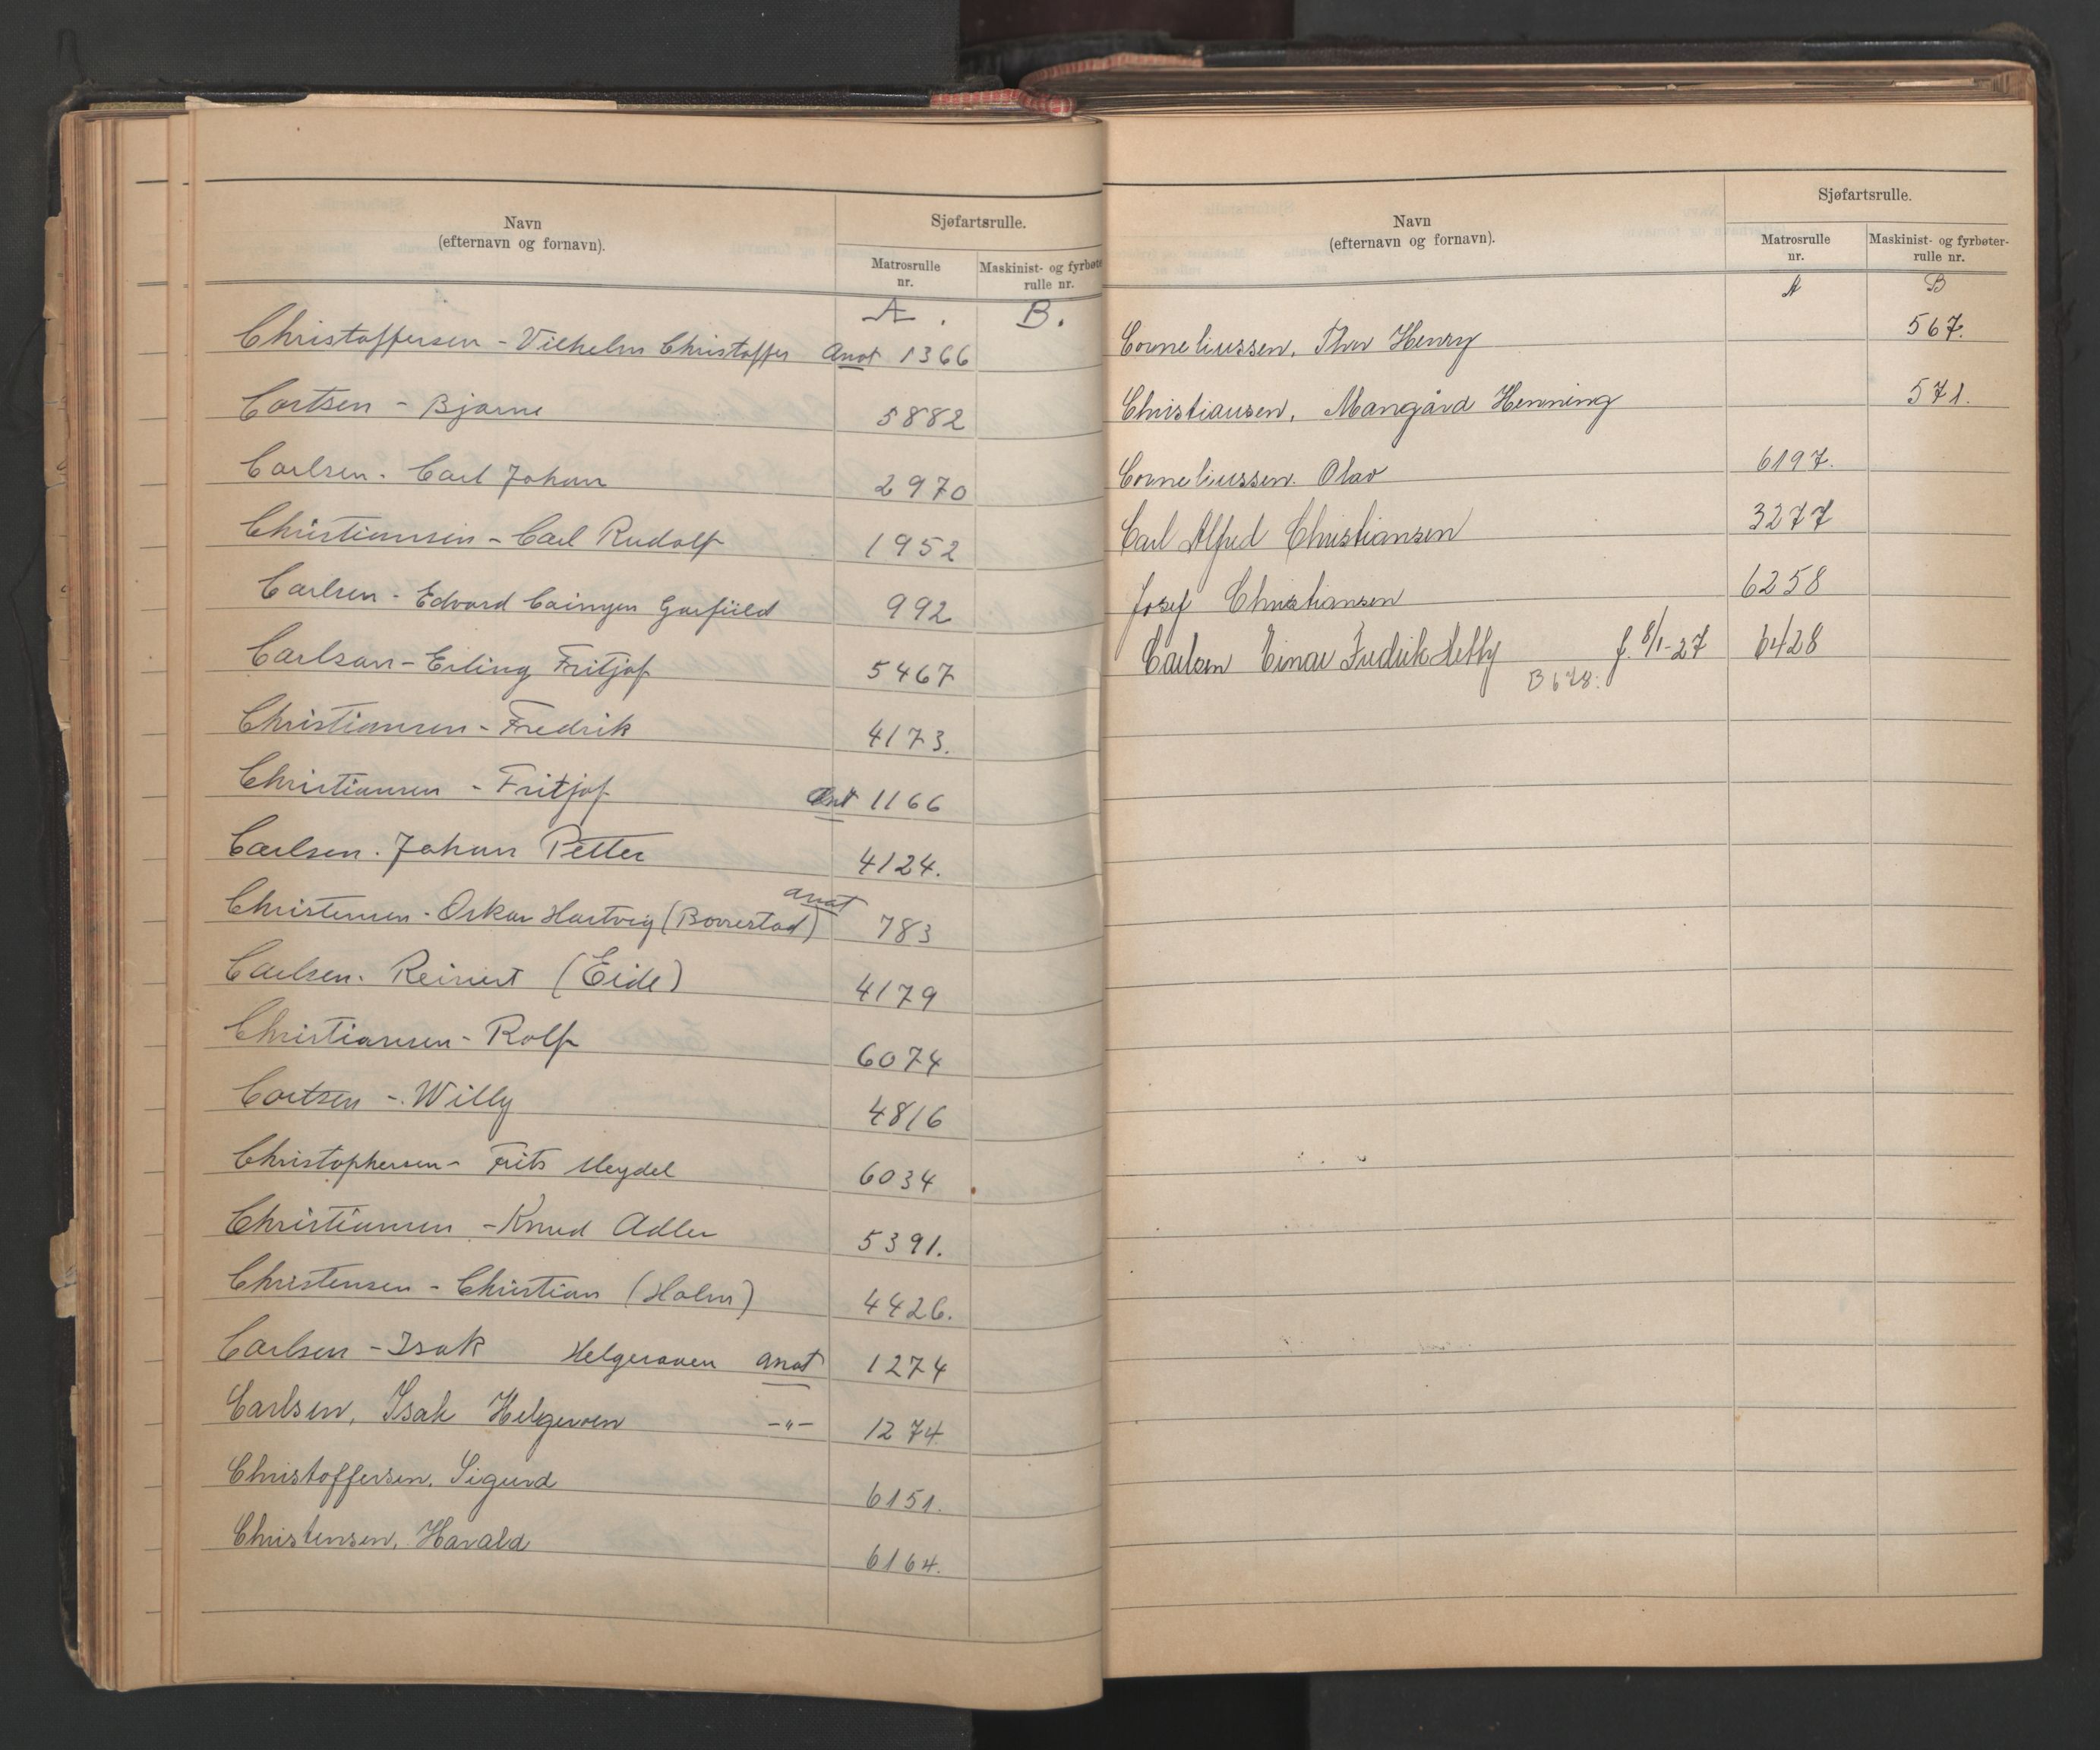 Navn
(efternavn og fornavn).
Sjøfartsrulle.
Matrosrulle
nr.
Maskinist- og fyrbøter-
rulle nr.
A.
B.
Christoffersen - Vilhelm Christoffer Anot 1366
Cortsen - Bjarne 5882
Carlsen - Carl Johan 2970
Christiansen - Carl Rudolf 1952
Carlsen - Edvard Garfield 992
Carlsen - Erling Fritjof 5467
Christiansen - Fredrik 4173.
Christiansen - Fritjof Ant 1166
Carlsen - Johan Petter 4124.
Christensen - Oskar Hartvig (Borrestad) anot 783
Carlsen - Reinert (Eide) 4179
Christiansen - Rolf 6074
Cortsen - Willy 4816
Christophersen - Frits Meydel 6034
Christiansen - Knud Adler 5391.
Christensen - Christian (Holm) 4426.
Carlsen - Isak Helgeroaen anot 1274
Carlsen, Isak Helgeroen -"- 1274
Christoffersen, Sigurd 6151.
Christensen, Harald 6164.
Navn
(efternavn og fornavn).
Sjøfartsrulle.
Matrosrulle
nr.
Maskinist- og fyrbøter-
rulle nr.
A
B
Corneliussen, Thor Henry 567.
Christiansen, Mangård Henning 571.
Corneliussen. Olav 6197.
Carl Alfred Christiansen 3277
Josef Christiansen 6258
Carlsen Einar Fredrik f. 8/1-27 6428
B 678.